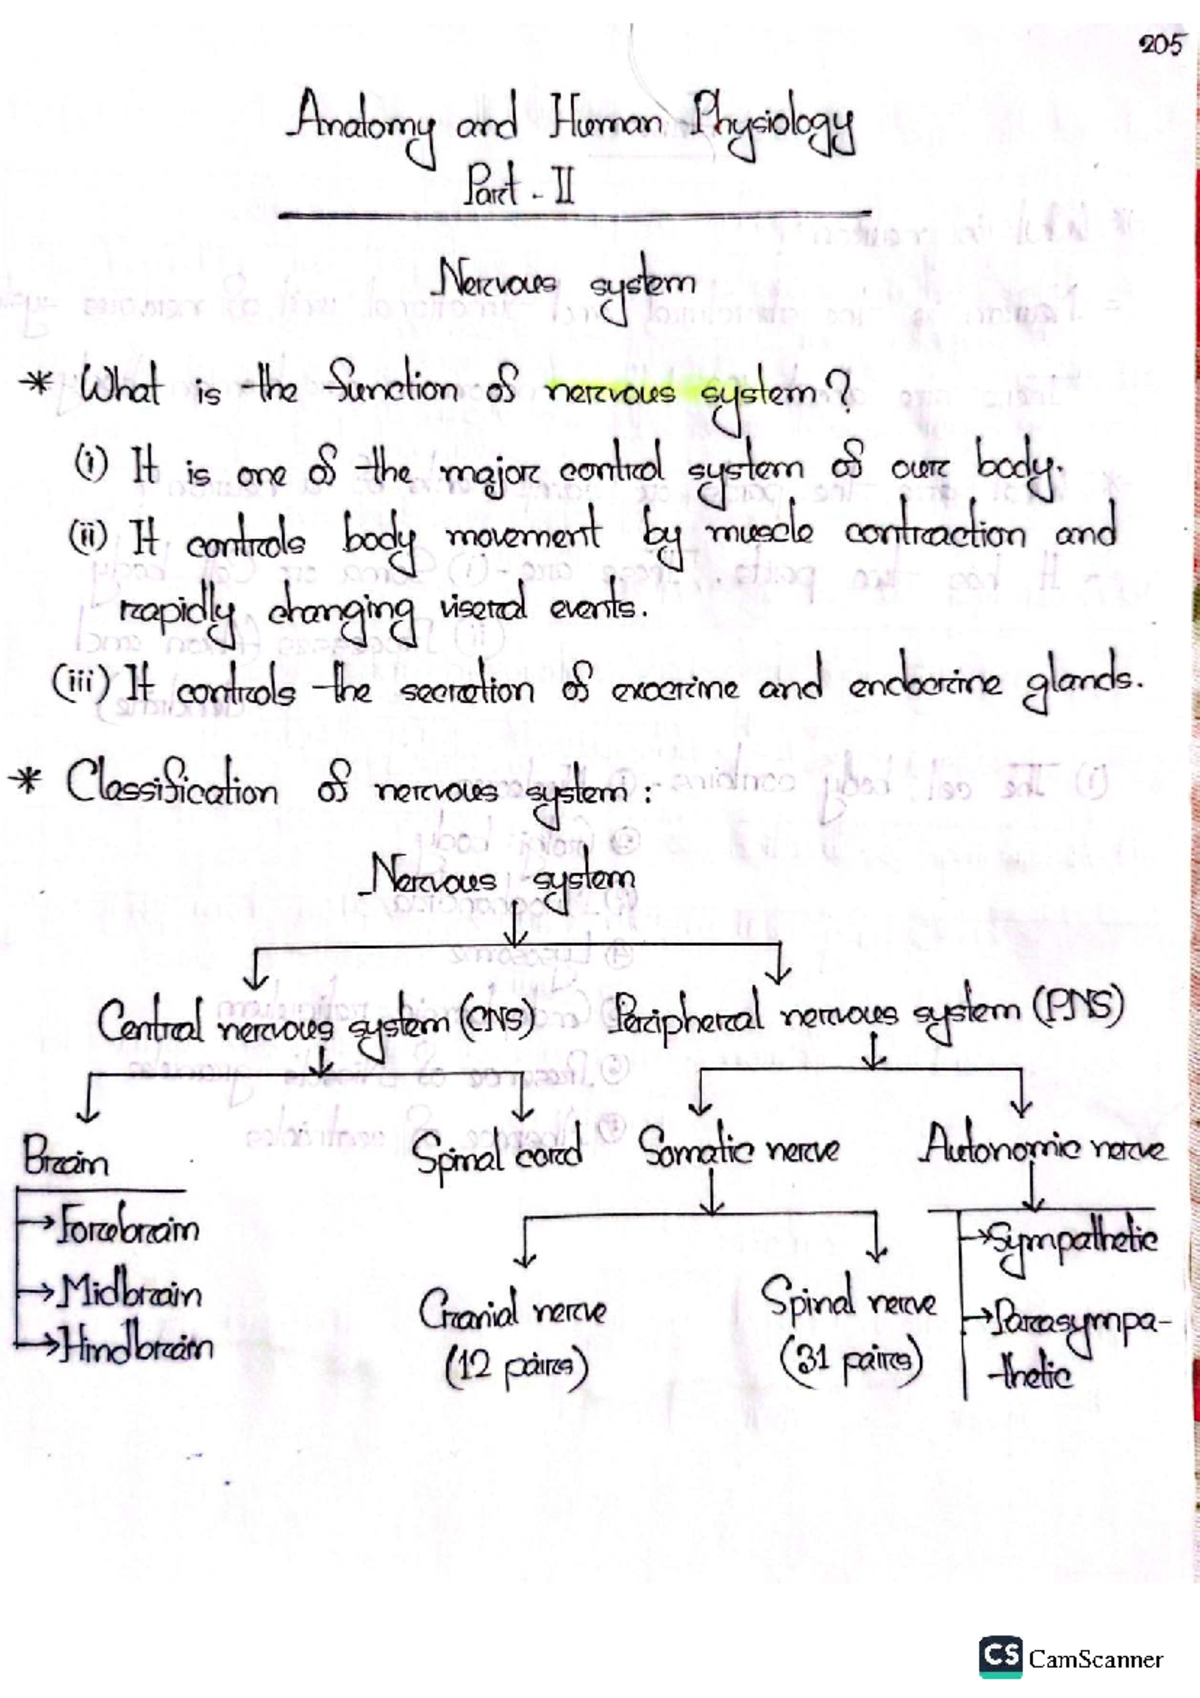 205
Anatomy and Human Physiology
Part - II
Nervous system
* What is the function of nervous system?
(i) It is one of the major control system of our body.
(ii) It controls body movement by muscle contraction and
rapidly changing viseral events.
(iii) It controls the secretion of exocrine and endocrine glands.
* Classification of nervous system :
Nervous system
Central nervous system (CNS) Peripheral nervous system (PNS)
Brain Spinal cord Somatic nerve Autonomic nerve
→ Forebrain → Sympathetic
→ Midbrain Cranial nerve Spinal nerve → Parasympa-
→ Hindbrain (12 pairs) (31 pairs) thetic
CS CamScanner